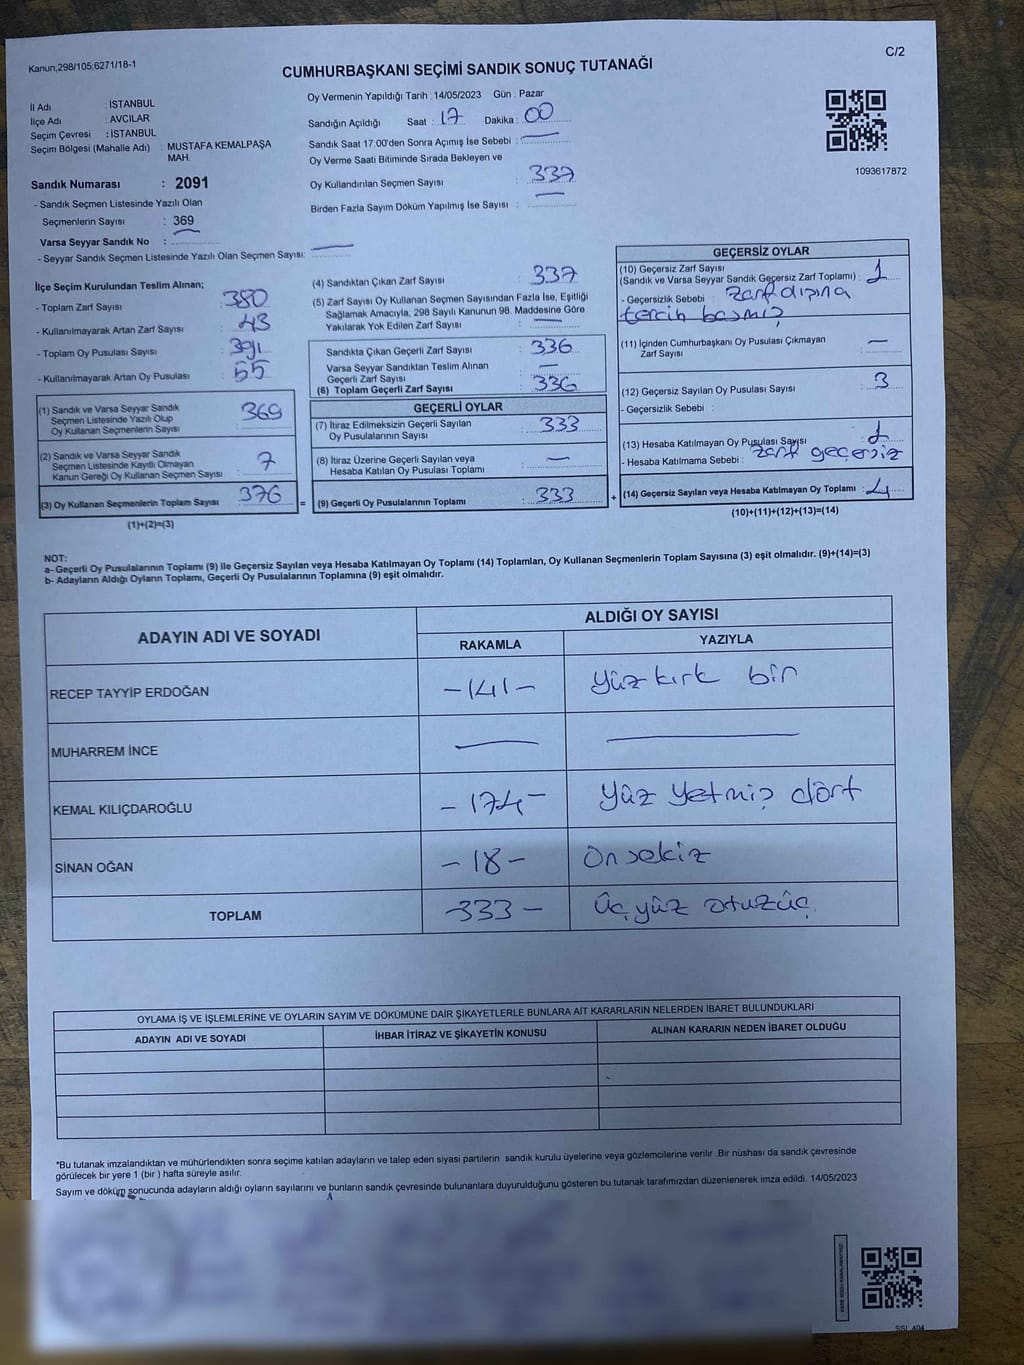 Kanun;298/105;6271/18-1
C/2
CUMHURBAŞKANI SEÇİMİ SANDIK SONUÇ TUTANAĞI
İl Adı : İSTANBUL
İlçe Adı : AVCILAR
Seçim Çevresi : İSTANBUL
Seçim Bölgesi (Mahalle Adı) : MUSTAFA KEMALPAŞA
MAH.
Sandık Numarası : 2091
- Sandık Seçmen Listesinde Yazılı Olan
Seçmenlerin Sayısı : 369
Varsa Seyyar Sandık No :
- Seyyar Sandık Seçmen Listesinde Yazılı Olan Seçmen Sayısı:
Oy Vermenin Yapıldığı Tarih : 14/05/2023 Gün : Pazar
Sandığın Açıldığı Saat : 17 Dakika : 00
Sandık Saat 17.00'den Sonra Açımış İse Sebebi : —
Oy Verme Saati Bitiminde Sırada Bekleyen ve
Oy Kullandırılan Seçmen Sayısı : 337
Birden Fazla Sayım Döküm Yapılmış İse Sayısı : —
1093617872
İlçe Seçim Kurulundan Teslim Alınan;
- Toplam Zarf Sayısı : 380
- Kullanılmayarak Artan Zarf Sayısı : 43
- Toplam Oy Pusulası Sayısı : 391
- Kullanılmayarak Artan Oy Pusulası : 55
(1) Sandık ve Varsa Seyyar Sandık
Seçmen Listesinde Yazılı Olup
Oy Kullanan Seçmenlerin Sayısı : 369
(2) Sandık ve Varsa Seyyar Sandık
Seçmen Listesinde Kayıtlı Olmayan
Kanun Gereği Oy Kullanan Seçmen Sayısı : 7
(3) Oy Kullanan Seçmenlerin Toplam Sayısı : 376 =
(1)+(2)=(3)
(4) Sandıktan Çıkan Zarf Sayısı : 337
(5) Zarf Sayısı Oy Kullanan Seçmen Sayısından Fazla İse, Eşitliği
Sağlamak Amacıyla, 298 Sayılı Kanunun 98. Maddesine Göre
Yakılarak Yok Edilen Zarf Sayısı : —
Sandıkta Çıkan Geçerli Zarf Sayısı : 336
Varsa Seyyar Sandıktan Teslim Alınan
Geçerli Zarf Sayısı : —
(6) Toplam Geçerli Zarf Sayısı : 336
GEÇERLİ OYLAR
(7) İtiraz Edilmeksizin Geçerli Sayılan
Oy Pusulalarının Sayısı : 333
(8) İtiraz Üzerine Geçerli Sayılan veya
Hesaba Katılan Oy Pusulası Toplamı : —
(9) Geçerli Oy Pusulalarının Toplamı : 333 +
GEÇERSİZ OYLAR
(10) Geçersiz Zarf Sayısı
(Sandık ve Varsa Seyyar Sandık Geçersiz Zarf Toplamı) : 1
- Geçersizlik Sebebi : zarf dışına
tercih basmış
(11) İçinden Cumhurbaşkanı Oy Pusulası Çıkmayan
Zarf Sayısı : —
(12) Geçersiz Sayılan Oy Pusulası Sayısı : 3
- Geçersizlik Sebebi :
(13) Hesaba Katılmayan Oy Pusulası Sayısı : 1
- Hesaba Katılmama Sebebi : zarf geçersiz
(14) Geçersiz Sayılan veya Hesaba Katılmayan Oy Toplamı : 4
(10)+(11)+(12)+(13)=(14)
NOT:
a- Geçerli Oy Pusulalarının Toplamı (9) ile Geçersiz Sayılan veya Hesaba Katılmayan Oy Toplamı (14) Toplamları, Oy Kullanan Seçmenlerin Toplam Sayısına (3) eşit olmalıdır. (9)+(14)=(3)
b- Adayların Aldığı Oyların Toplamı, Geçerli Oy Pusulalarının Toplamına (9) eşit olmalıdır.
ADAYIN ADI VE SOYADI
ALDIĞI OY SAYISI
RAKAMLA YAZIYLA
RECEP TAYYİP ERDOĞAN -141- Yüz kırk bir
MUHARREM İNCE — —
KEMAL KILIÇDAROĞLU -174- Yüz Yetmiş dört
SİNAN OĞAN -18- Onsekiz
TOPLAM -333- Üç yüz otuzüç
OYLAMA İŞ VE İŞLEMLERİNE VE OYLARIN SAYIM VE DÖKÜMÜNE DAİR ŞİKAYETLERLE BUNLARA AİT KARARLARIN NELERDEN İBARET BULUNDUKLARI
ADAYIN ADI VE SOYADI İHBAR İTİRAZ VE ŞİKAYETİN KONUSU ALINAN KARARIN NEDEN İBARET OLDUĞU
*Bu tutanak imzalandıktan ve mühürlendikten sonra seçime katılan adayların ve talep eden siyasi partilerin sandık kurulu üyelerine veya gözlemcilerine verilir .Bir nüshası da sandık çevresinde
görülecek bir yere 1 (bir ) hafta süreyle asılır.
Sayım ve döküm sonucunda adayların aldığı oyların sayılarını ve bunların sandık çevresinde bulunanlara duyurulduğunu gösteren bu tutanak tarafımızdan düzenlenerek imza edildi. 14/05/2023